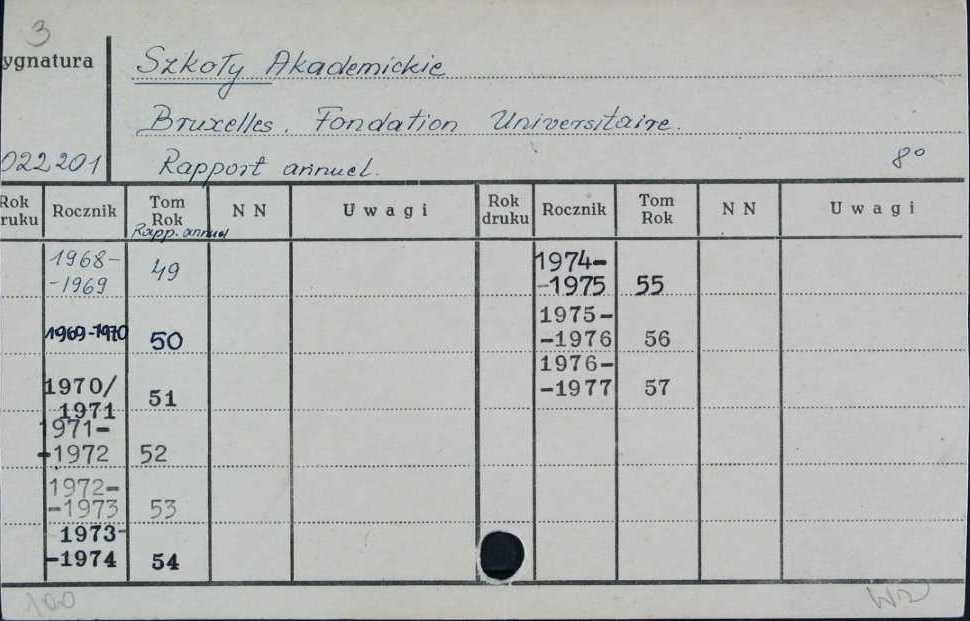 3
ygnatura
Szkoły Akademickie
Bruxelles. Fondation Universitaire.
022201
Rapport annuel.
8°
Rok druku Rocznik Tom Rok NN Uwagi Rok druku Rocznik Tom Rok NN Uwagi
Rapp. annuel
1968-
-1969 49
1969-1970 50
1970/
1971 51
1971-
-1972 52
1972-
-1973 53
1973-
-1974 54
1974-
-1975 55
1975-
-1976 56
1976-
-1977 57
100